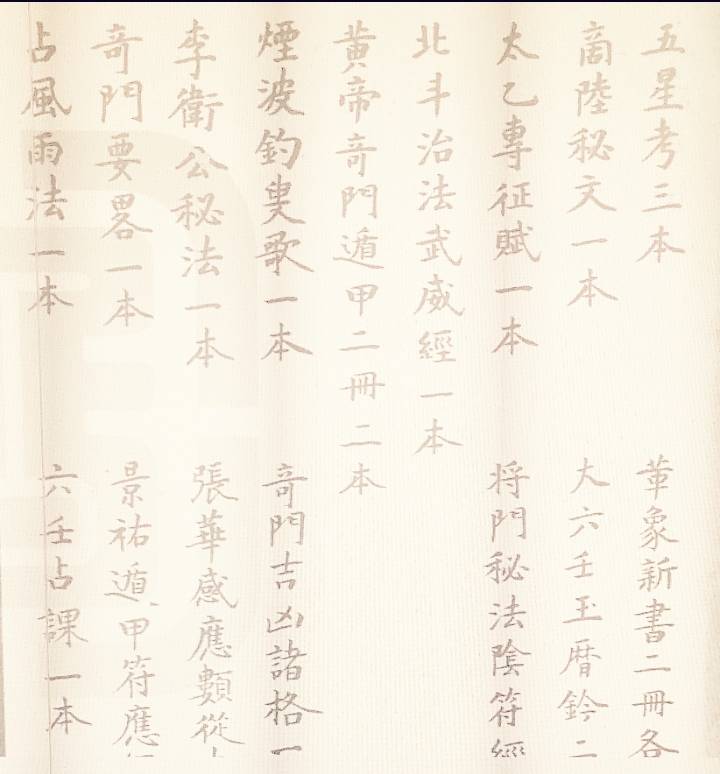 五星考三本
革象新書二冊各
啇陸秘文一本
大六壬玉曆鈐二
太乙專征賦一本
将門秘法陰符經
北斗治法武威經一本
黄帝竒門遁甲二冊二本
煙波釣叟歌一本
竒門吉凶諸格一
李衛公秘法一本
張華感應類從
竒門要畧一本
景祐遁甲符應
占風雨法一本
六壬占課一本